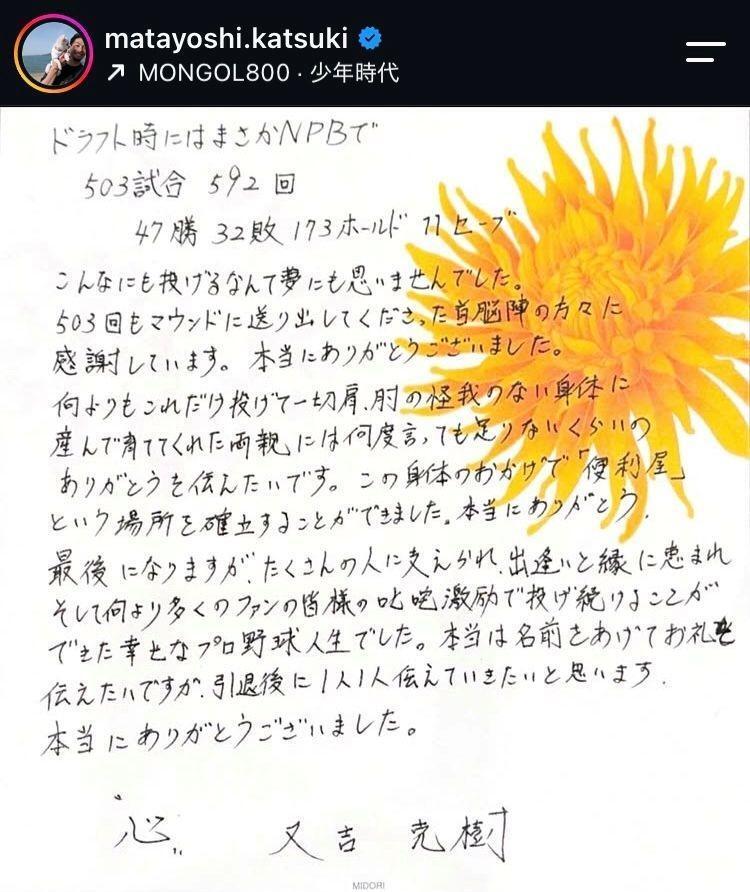 matayoshi.katsuki
MONGOL800・少年時代
ドラフト時にはまさかNPBで
503試合 592回
47勝 32敗 173ホールド 11セーブ
こんなにも投げるなんて夢にも思いませんでした。
503回もマウンドに送り出してくださった首脳陣の方々に
感謝しています。本当にありがとうございました。
何よりもこれだけ投げて一切肩、肘の怪我のない身体に
産んで育ててくれた両親には何度言っても足りないくらいの
ありがとうを伝えたいです。この身体のおかげで「便利屋」
という場所を確立することができました。本当にありがとう.
最後になりますが、たくさんの人に支えられ、出逢いと縁に恵まれ
そして何より多くのファンの皆様の叱咤激励で投げ続けることが
できた幸せなプロ野球人生でした。本当は名前をあげてお礼を
伝えたいですが、引退後に1人1人伝えていきたいと思います.
本当にありがとうございました。
"心" 又吉 克樹
MIDORI